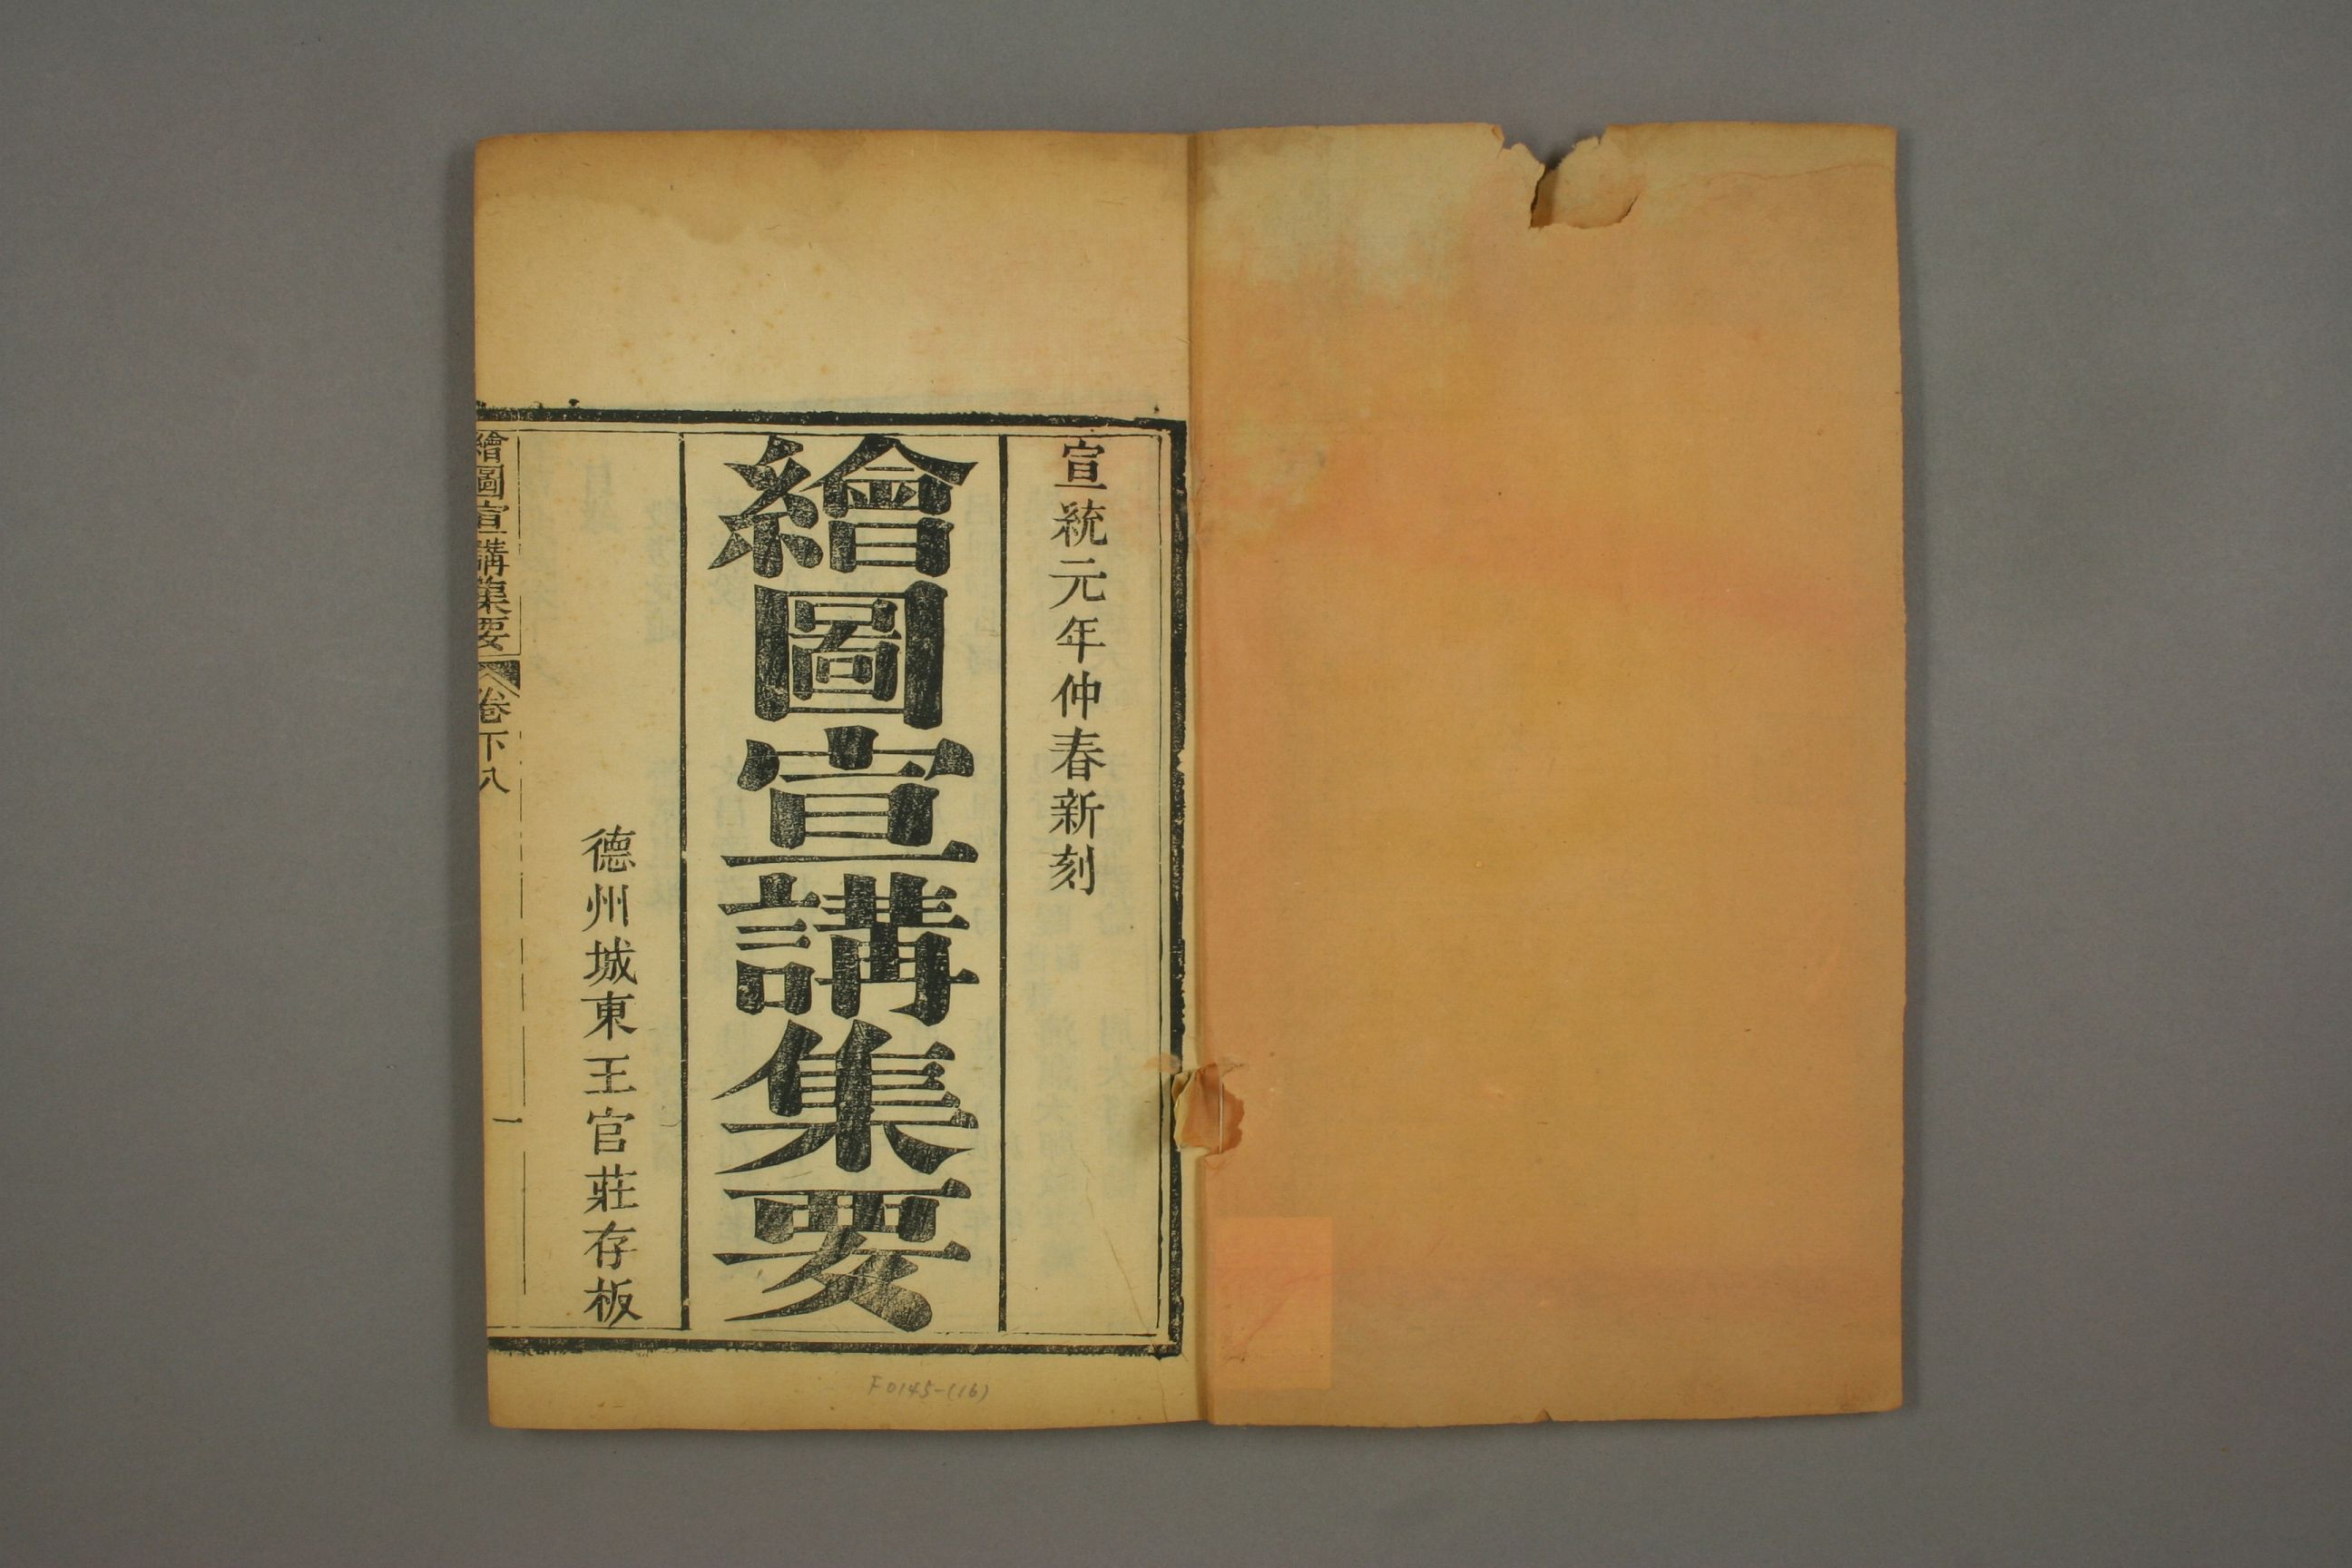 宣統元年仲春新刻
繪圖宣講集要
德州城東王官莊存板
繪圖宣講集要 卷下八 一
F0145-(16)